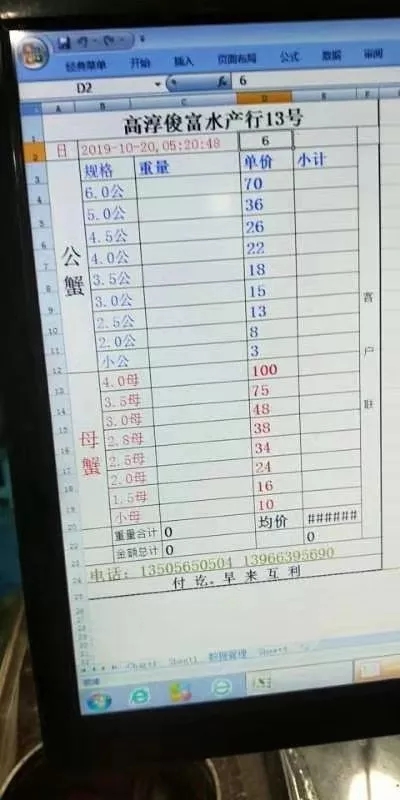 经典菜单 开始 插入 页面布局 公式 数据 审阅
D2 fx 6
A B C D E F
高淳俊富水产行13号
日 2019-10-20,05:20:48 6
规格 重量 单价 小计
公蟹
6.0公 70
5.0公 36
4.5公 26
4.0公 22
3.5公 18
3.0公 15
2.5公 13
2.0公 8
小公 3
母蟹
4.0母 100
3.5母 75
3.0母 48
2.8母 38
2.5母 34
2.0母 24
1.5母 16
小母 10
客户联
重量合计 0 均价 ######
金额总计 0 0
电话: 13505650504 13966395690
付讫。早来互利
Chart1 Sheet1 数据管理